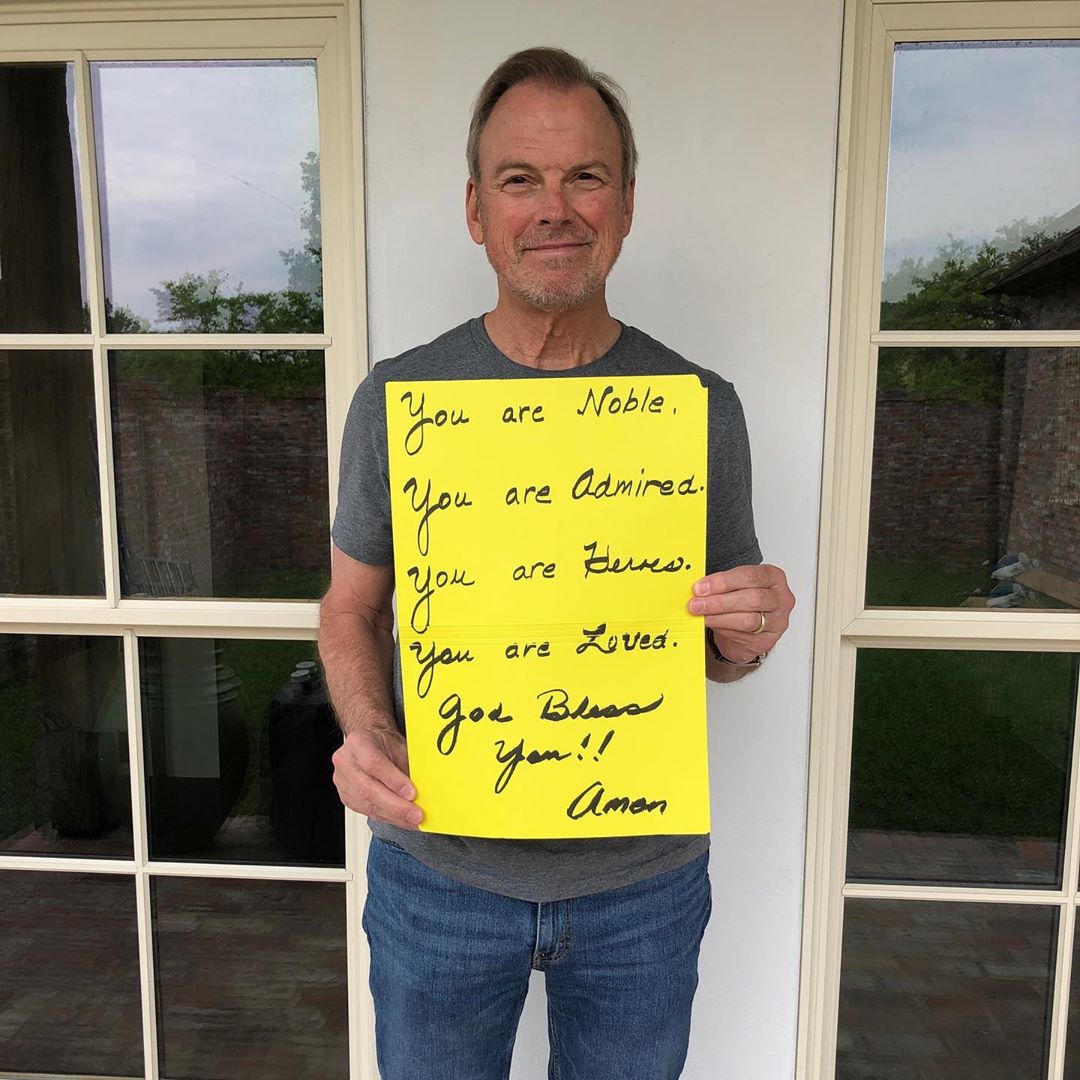 You are Noble.
You are Admired.
You are Heroes.
You are Loved.
God Bless
You!!
Amen